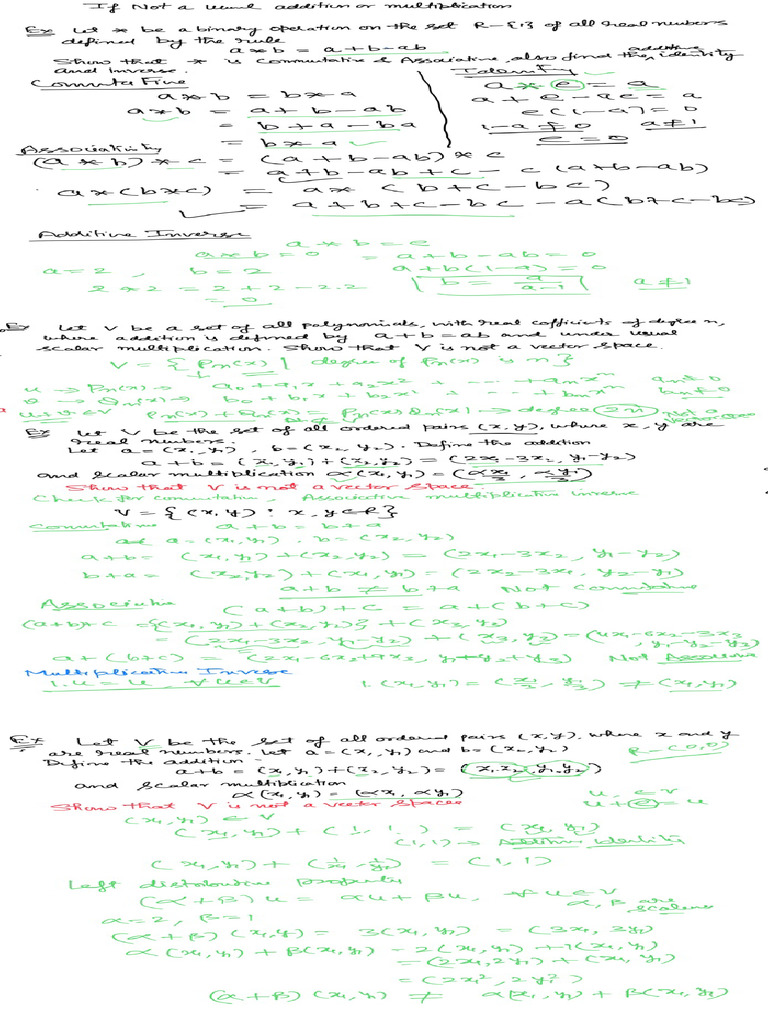 If Not a usual addition or multiplication
Ex Let * be a binary operation on the set R-{1} of all real numbers
defined by the rule
a*b = a+b-ab
Show that * is Commutative & Associative, also find the identity
additive
and inverse.
Commutative
a*b = b*a
a*b = a+b-ab
= b+a-ba
= b*a
Identity
a*e = a
a+e-ae = a
e(1-a) = 0
1-a≠0 a≠1
e=0
Associativity
(a*b)*c = (a+b-ab)*c
= a+b-ab+c - c(a+b-ab)
a*(b*c) = a*(b+c-bc)
= a+b+c-bc - a(b+c-bc)
Additive Inverse
a*b = e
a*b = 0 = a+b-ab = 0
a=2, b=2 a+b(1-a) = 0
2*2 = 2+2-2.2 b = a/(a-1) a≠1
= 0
Ex Let V be a set of all polynomials, with real cofficients of degree n,
where addition is defined by a+b=ab and under usual
scalar multiplication. Show that V is not a vector space.
V = { Pn(x) | degree of Pn(x) is n }
u → Pn(x) → a0+a1x+a2x²+ --- +anxⁿ an≠0
v → Qn(x) → b0+b1x+b2x²+ --- +bnxⁿ bn≠0
u+v∈V Pn(x)+Qn(x) = Pn(x)Qn(x) → degree 2n Not a
Ex Let V be the set of all ordered pairs (x,y), where x, y are
real numbers.
Let a=(x1,y1), b=(x2,y2). Define the addition
a+b = (x1,y1)+(x2,y2) = (2x1-3x2, y1-y2)
and scalar multiplication α(x1,y1) = (αx1/3, αy1/3)
Show that V is not a vector space
Check for commutative, Associative multiplicative inverse
V = { (x,y) : x,y∈R }
Commutative a+b = b+a
a=(x1,y1), b=(x2,y2)
a+b = (x1,y1)+(x2,y2) = (2x1-3x2, y1-y2)
b+a = (x2,y2)+(x1,y1) = (2x2-3x1, y2-y1)
a+b ≠ b+a Not commutative
Associative (a+b)+c = a+(b+c)
(a+b)+c = {(x1,y1)+(x2,y2)}+(x3,y3)
= (2x1-3x2, y1-y2)+(x3,y3) = (4x1-6x2-3x3, y1-y2-y3)
a+(b+c) = (2x1-6x2+9x3, y1+y2+y3) Not Associative
Multiplicative Inverse
1.u = u, ∀u∈V 1.(x1,y1) = (x1/3, y1/3) ≠ (x1,y1)
Ex Let V be the set of all ordered pairs (x,y), where x and y
are real numbers. Let a=(x1,y1) and b=(x2,y2) R-(0,0)
Define the addition
a+b = (x1,y1)+(x2,y2) = (x1x2, y1y2)
and scalar multiplication
α(x1,y1) = (αx1, αy1)
u, ∈V
u+e=u
Show that V is not a vector space
(x1,y1) ∈ V
(x1,y1)+(1,1) = (x1,y1)
(1,1) → Additive identity
(x1,y1)+(1/x1, 1/y1) = (1,1)
Left distributive property
(α+β)u = αu+βu, ∀u∈V
α,β are scalars
α=2, β=1
(α+β)(x1,y1) = 3(x1,y1) = (3x1, 3y1)
α(x1,y1)+β(x1,y1) = 2(x1,y1)+1(x1,y1)
= (2x1,2y1)+(x1,y1)
= (2x1², 2y1²)
(α+β)(x1,y1) ≠ α(x1,y1)+β(x1,y1)